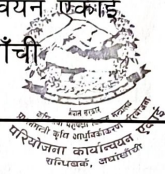 वयन एकाई
ाँची
नेपाल सरकार
कृषि आधुनिकीकरण
परियोजना कार्यान्वयन एकाई
सन्धिखर्क, अर्घाखाँची